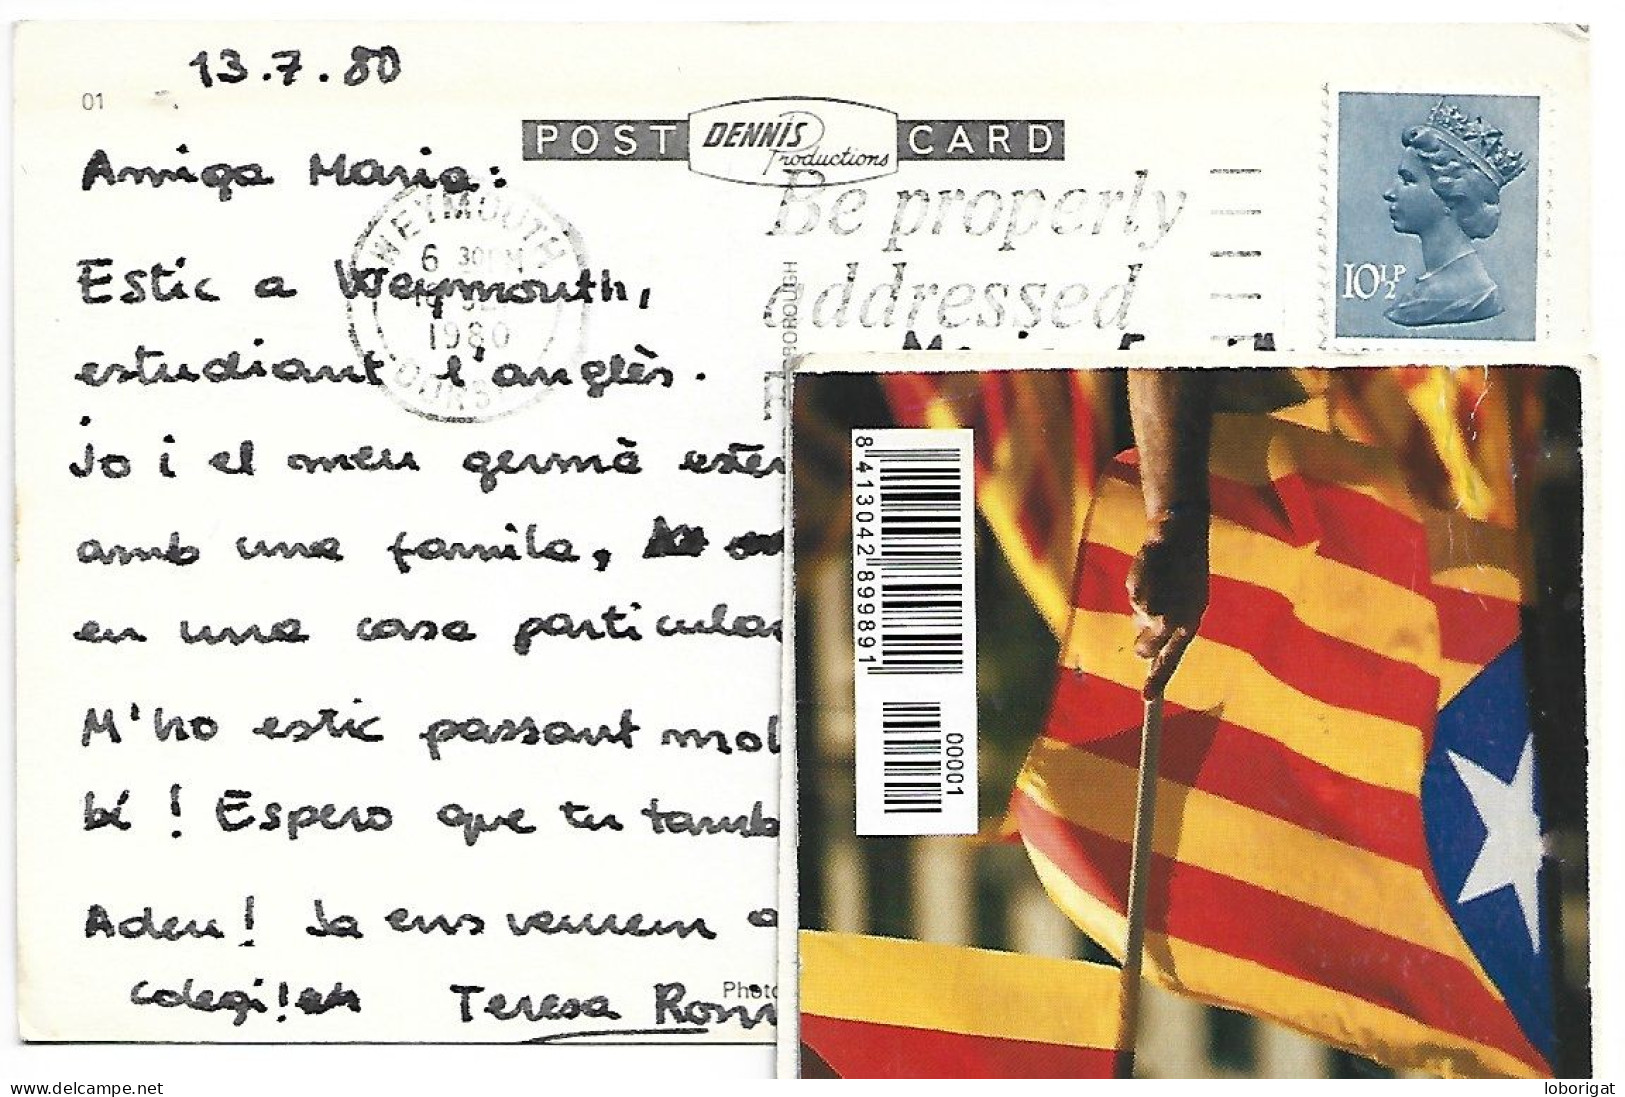 13.7.80
01
POST DENNIS Productions CARD
Amiga Maria:
WEYMOUTH
6 30PM
1980
Be properly
addressed
10½P
Estic a Weymouth,
estudiant l'anglès.
Jo i el meu germà
amb una famila,
en una casa particular
M'ho estic passant mol
bé! Espero que tu també
Adeu! Ja ens veurem a
colegi!
Teresa
Photo
BOROUGH
Maria
8 413042 899891
00001
www.delcampe.net
loborigat